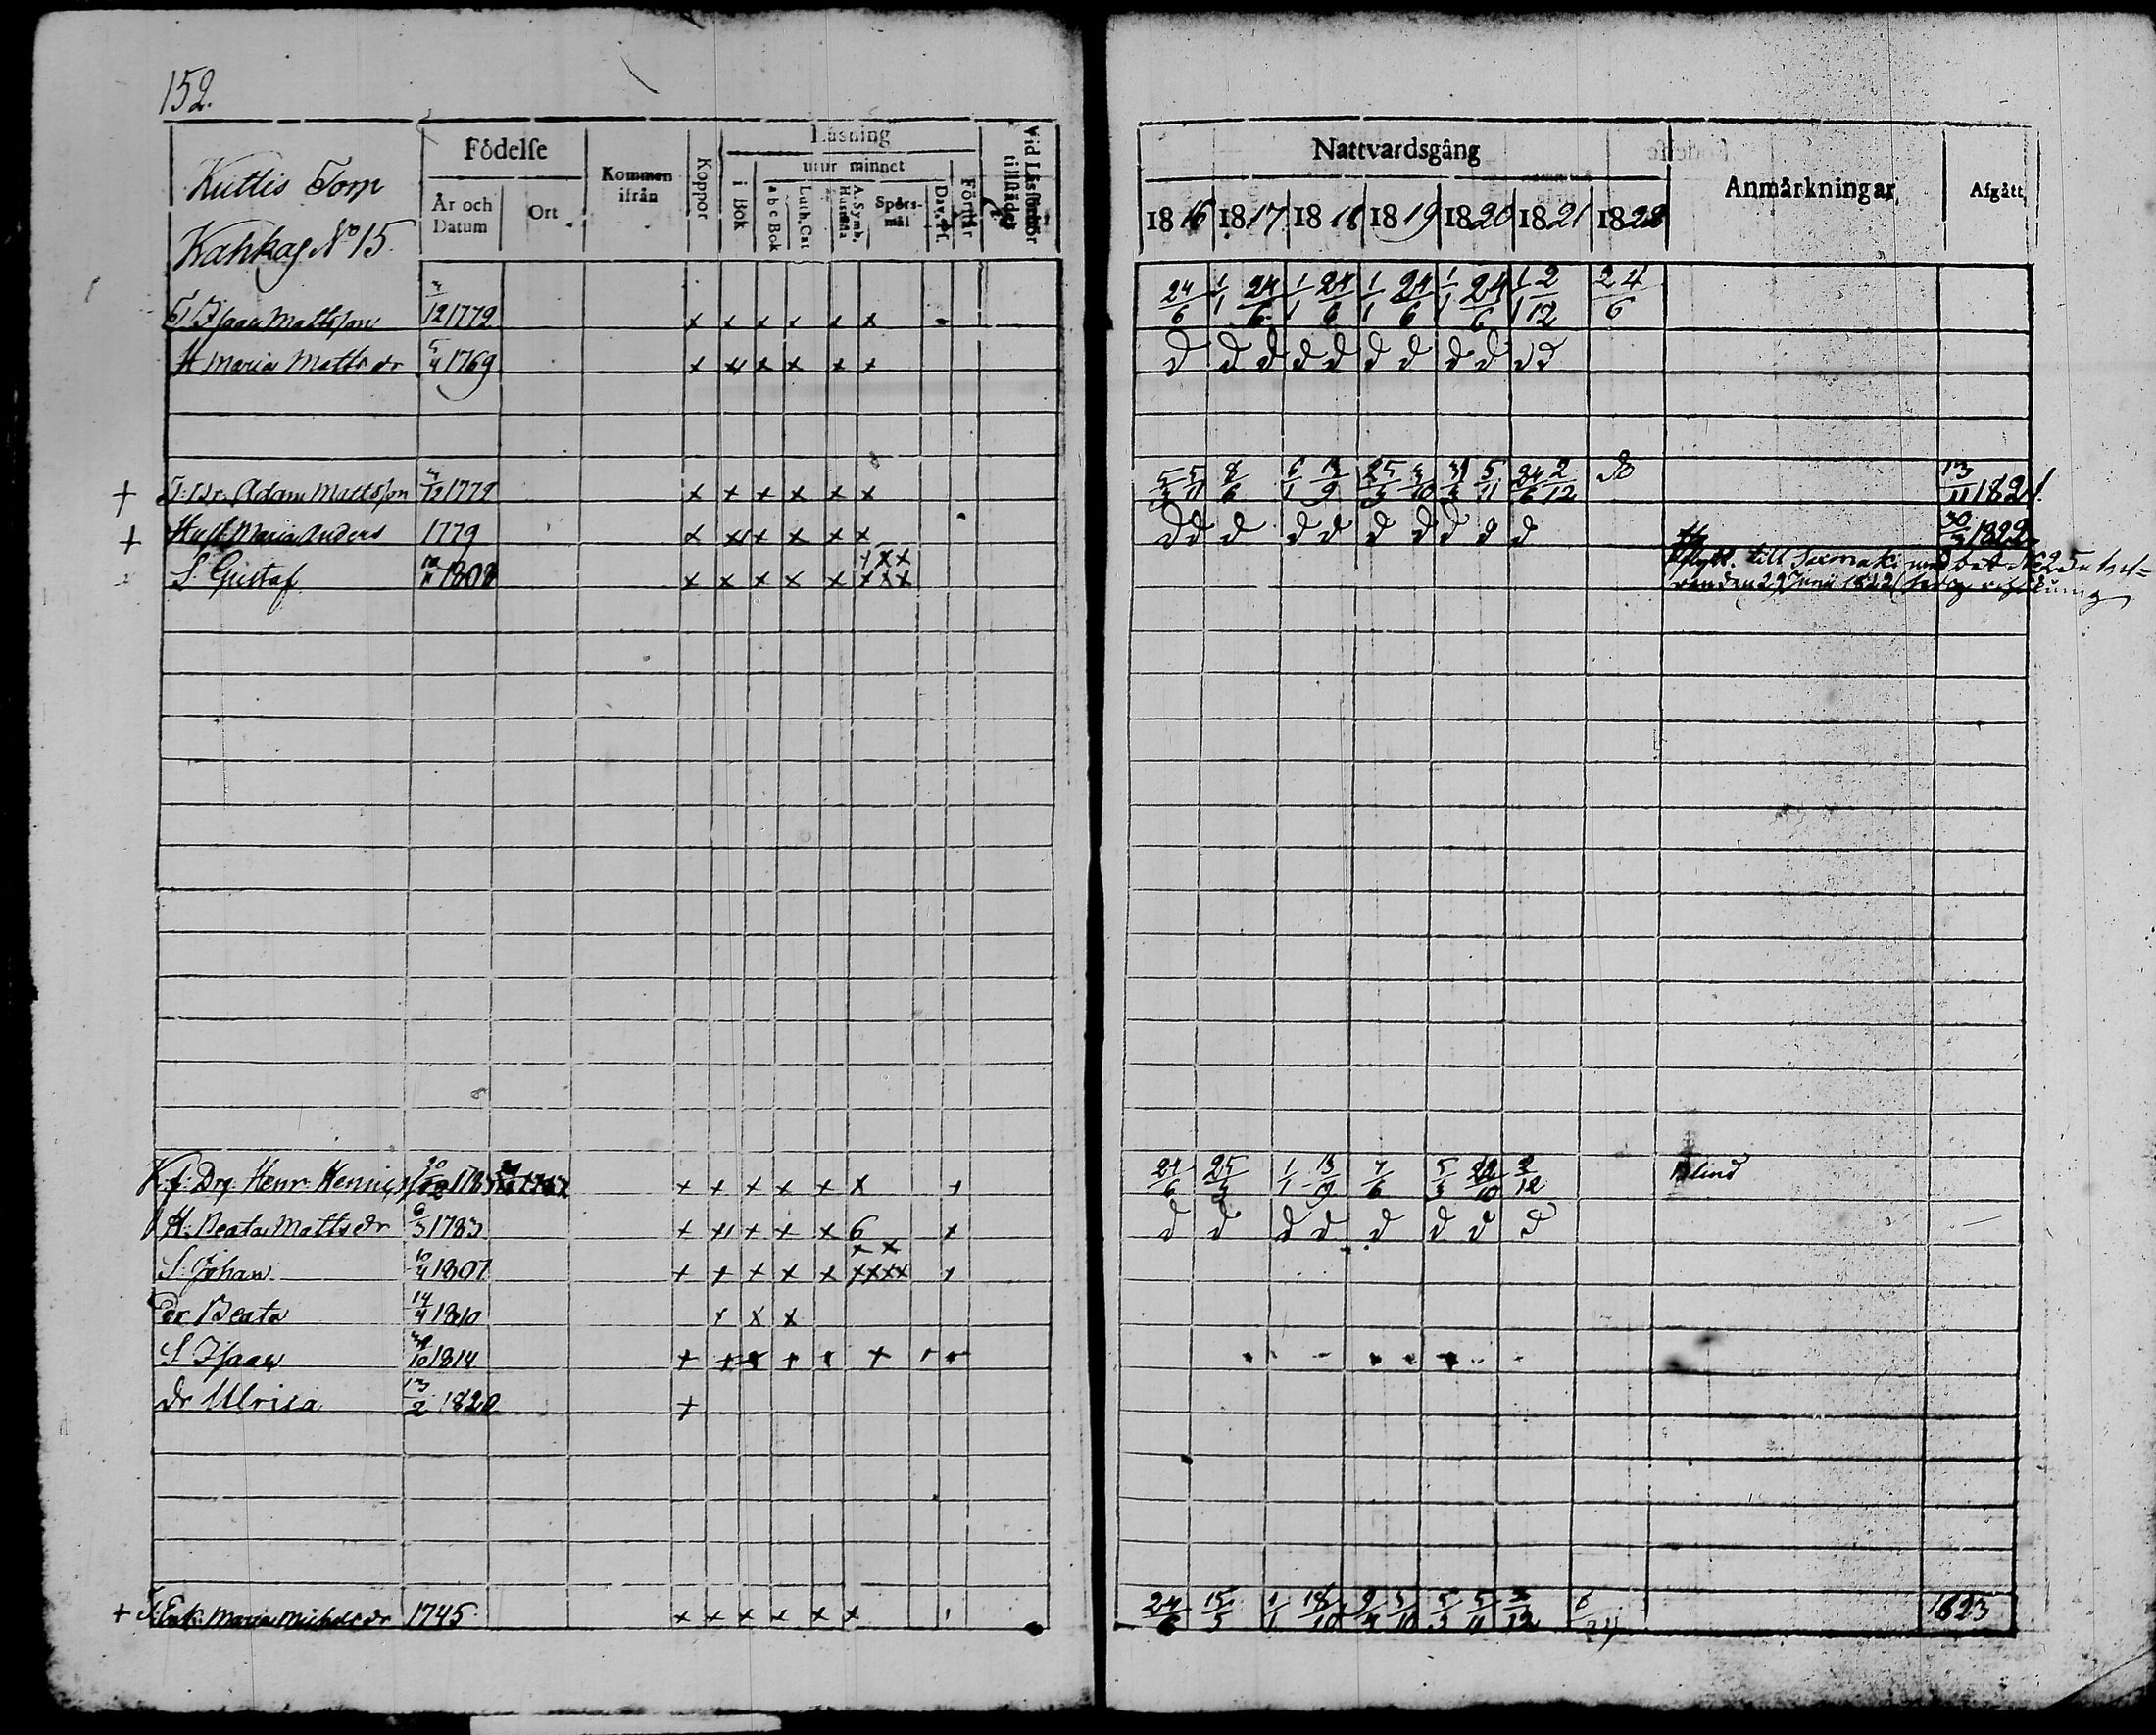 152.
Kuttis Torp
Kahkag No 15.
Födelse
År och Datum
Ort
Kommen ifrån
Koppor
Läsning
i Bok
utur minnet
a b c Bok
Luth. Cat
A. Symb. Hustafla
Spörs-mål
Dav. Ps.
Förstår
Vid Läsförhör tillstädes
Nattvardsgång
1816 1817 1818 1819 1820 1821 1822
Anmärkningar
Afgått
T. Isaac Mattsson 3/12 1779 x x x x x x 24/6 1/1 24/6 1/1 24/6 1/1 24/6 1/1 24/6 1/1 2/12 24/6
H Maria Matts dr 5/4 1769 x x x x x x d d d d d d d d d d d
+ T: Br. Adam Mattsson 3/12 1779 x x x x x x 5/3 5/11 8/6 6/1 13/9 25/3 3/10 31/3 5/11 24/6 2/12 do 13/11 1821.
+ Hust Maria Anders 1779 x x x x x x d d d d d d d d d d 30/3 1822
S. Gustaf 1802 x x x x x x x x
flytt. till med bet No 25
den 29 Junii 1822
K. f. Drg Henr. Henrics 20/12 178 x x x x x x 24/6 25/3 1/1 13/9 7/6 5/3 22/10 2/12 Blind
H. Beata Matts dr 6/3 1783 x x x x x 6 x d d d d d d d d
S. Johan 10/4 1807 x x x x x x x x x
dr Beata 14/4 1810 x x x
S Isaac 30/10 1814 x x x x x x
dr Ulrica 13/2 1820 x
+ Enk. Maria Michels dr 1745 x x x x x x 24/6 15/5 1/1 18/10 2/4 3/10 5/3 5/11 2/12 6/24 1823